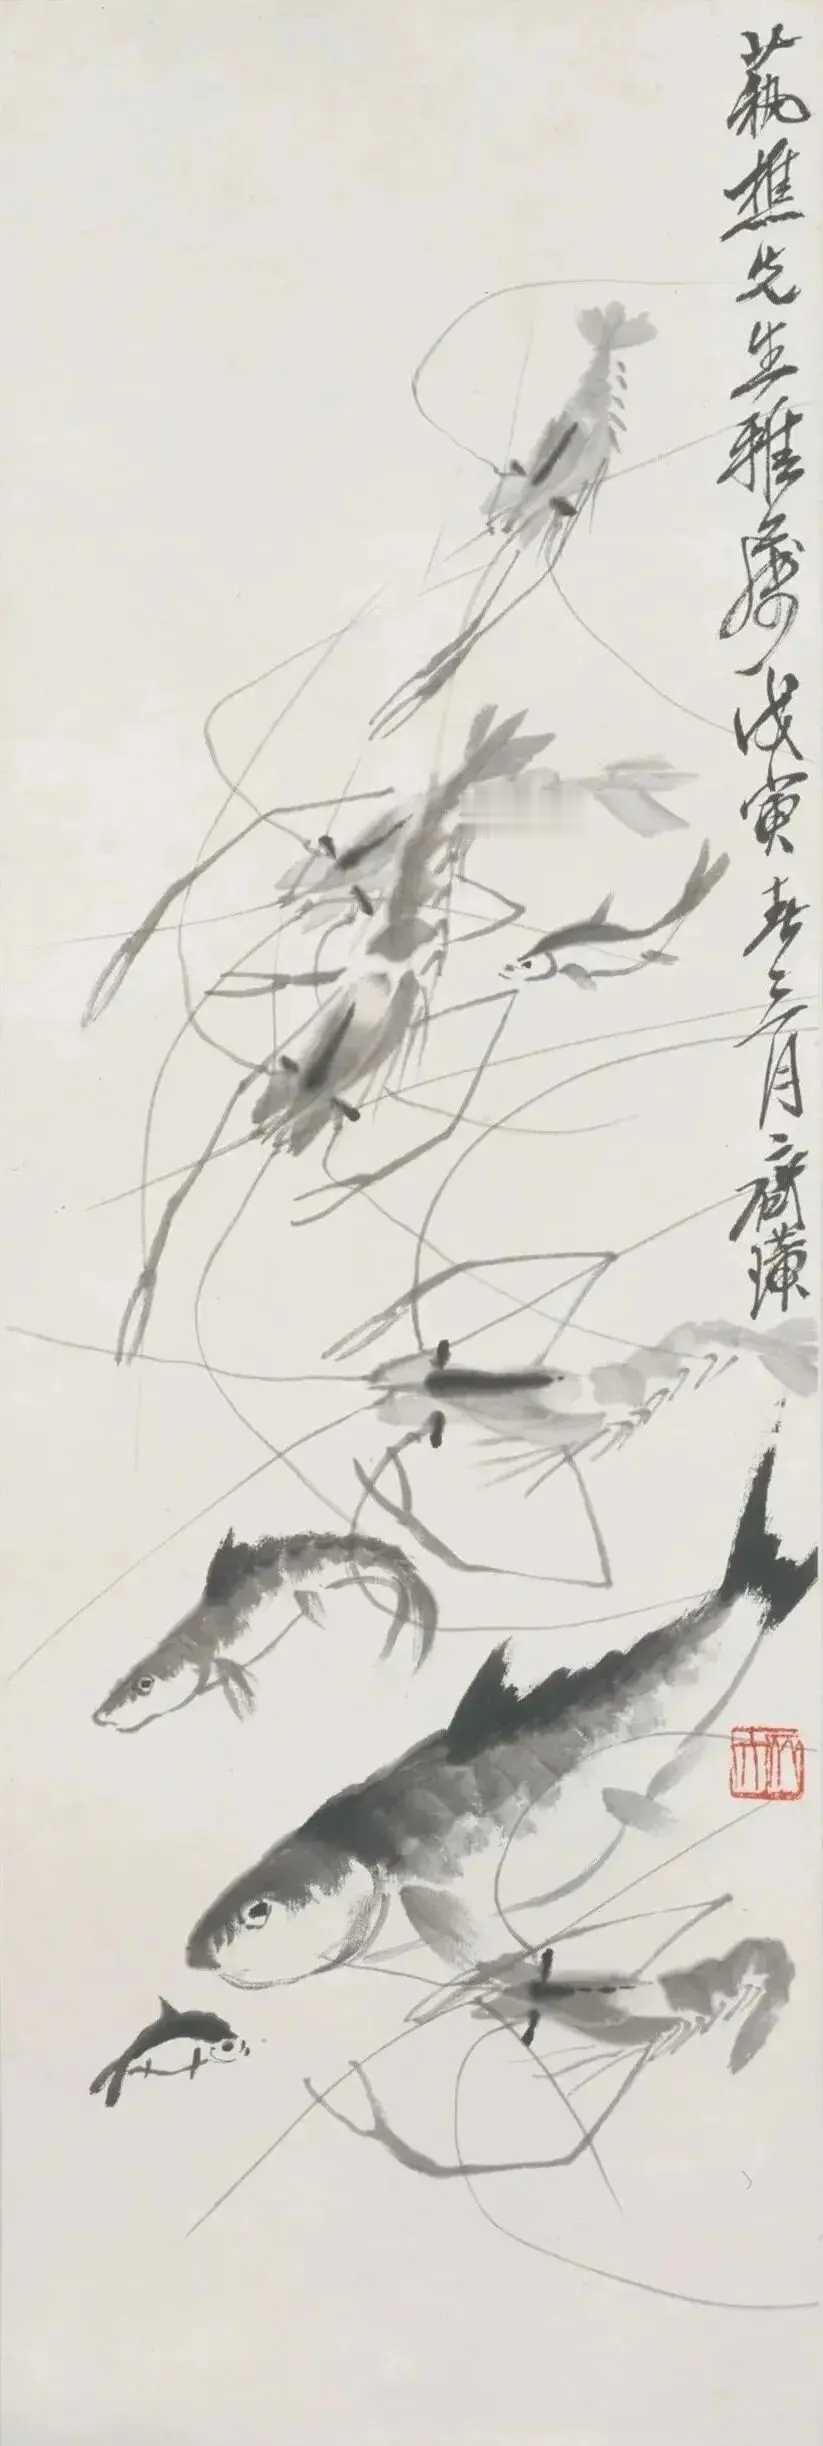 蓺樵先生雅属戊寅春三月齐璜